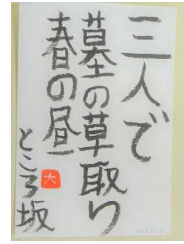 三人で
墓の草取り
春の昼
ところ坂
六